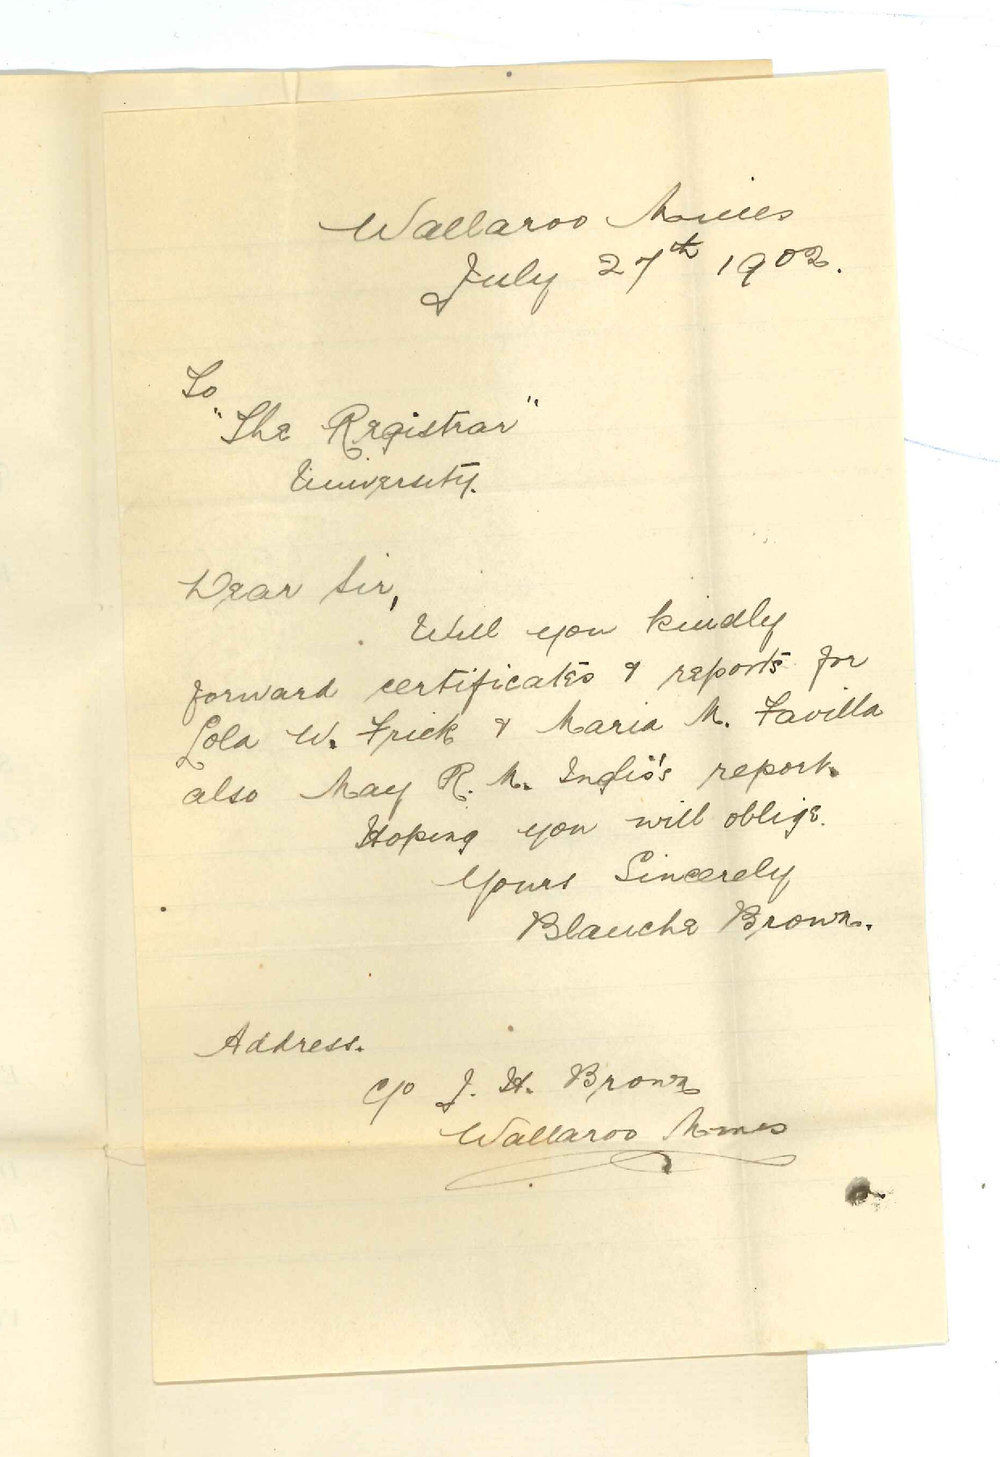 Wallaroo Mines
July 27th 1902.
To
"The Registrar"
University.
Dear Sir,
Will you kindly
forward certificates & reports for
Lola W. Frick & Maria M. Favilla
also May R. M. Inglis's report.
Hoping you will oblige.
Yours Sincerely
Blanche Brown.
Address.
c/o J. H. Brown
Wallaroo Mines